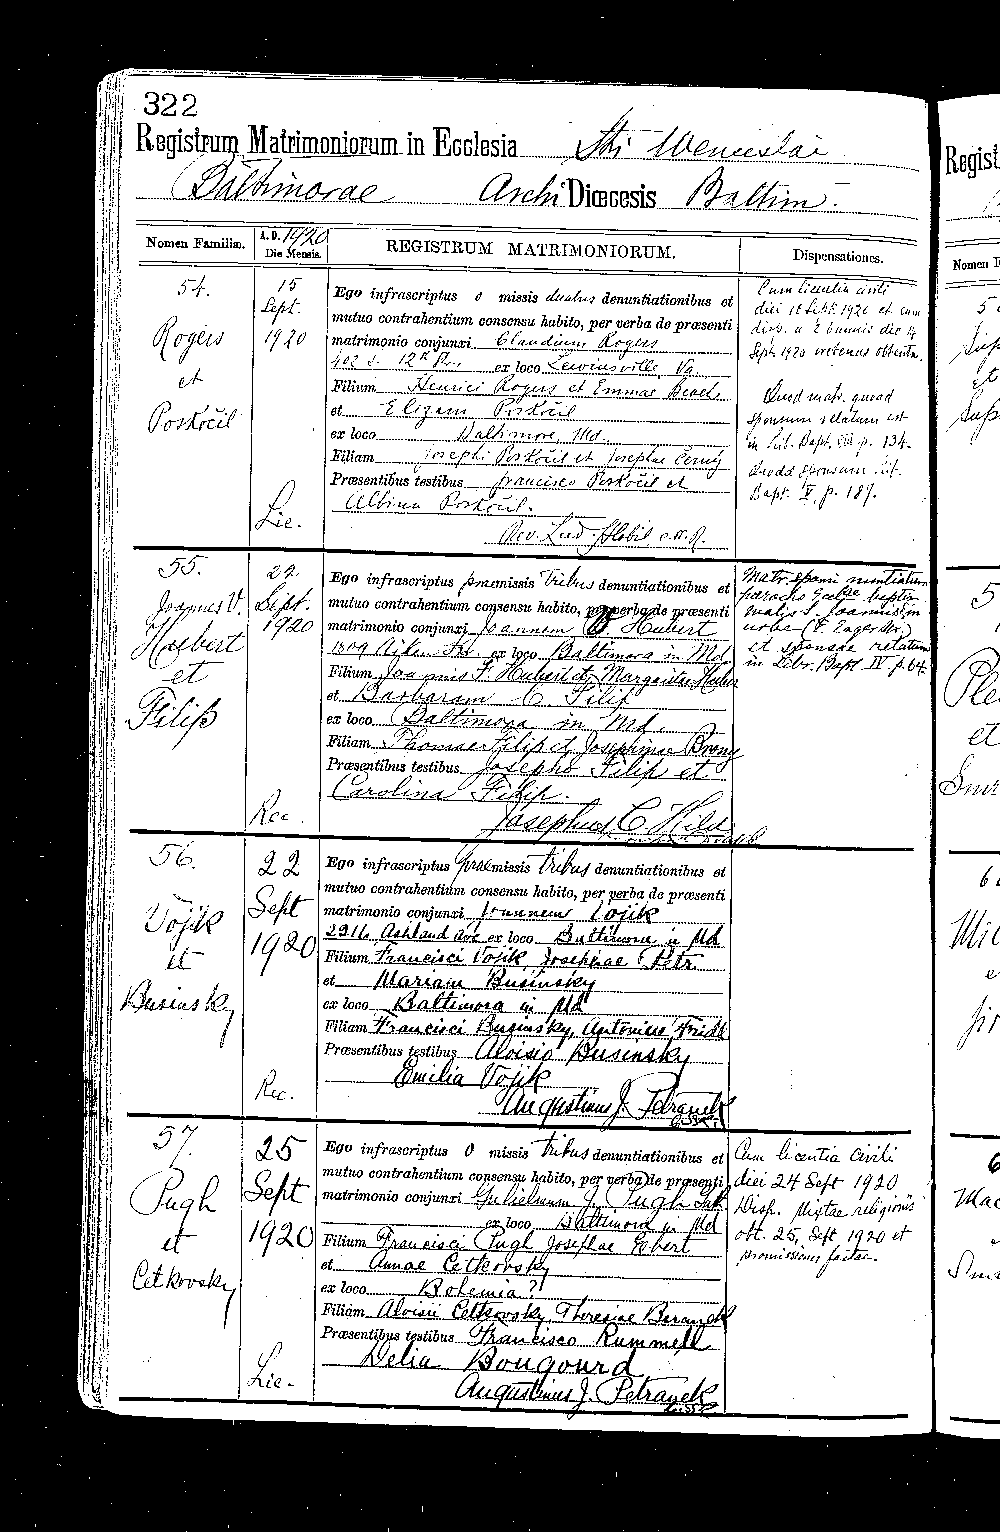 322
Registrum Matrimoniorum in Ecclesia Sti Wenceslai
Baltimorae Archi Diœcesis Baltim.
Nomen Familiæ.
A. D. 1920
Die Mensis.
REGISTRUM MATRIMONIORUM.
Dispensationes.
54.
Rogers
et
Poskočil
15
Sept.
1920
Lic.
Ego infrascriptus o missis duabus denuntiationibus et
mutuo contrahentium consensu habito, per verba de præsenti
matrimonio conjunxi Claudium Rogers
402 S. 12th ex loco Lewinsville, Va.
Filium Henrici Rogers et Emmae
et Elizam Poskočil
ex loco Baltimore, Md.
Filiam Josephi Poskočil et Josephae Černý
Præsentibus testibus Francisco Poskočil et
Albina Poskočil.
Rev. Lud. Hobil c.ss.r.
Cum licentia civili
diei 15 Sept. 1920 et cum
disp. a 2 bannis die 14
Sept. 1920 oretenus obtenta.
Quod matr. quoad
sponsum relatum est
in Lib. Bapt. VIII p. 134.
Quoad sponsam Lib.
Bapt. V, p. 187.
55.
Joannes V.
Huebert
et
Filip
22.
Sept.
1920
Rec.
Ego infrascriptus praemissis tribus denuntiationibus et
mutuo contrahentium consensu habito, per verba de præsenti
matrimonio conjunxi Joannem V Hubert
1809 ex loco Baltimora in Md.
Filium Joannis F. Hubert et Margaritae
et Barbaram C. Filip
ex loco Baltimora in Md.
Filiam Thomae Filip et Josephinae
Præsentibus testibus Josepho Filip et
Carolina Filip.
Josephus C. Hild
Matr. sponsi nuntiatum
parocho Eccliae baptis
malis S. Joannis in
urbe
et sponsae relatum
in Libr. Bapt. IV p. 64.
56.
Vojik
et
Businsky
22
Sept
1920
Rec.
Ego infrascriptus praemissis tribus denuntiationibus et
mutuo contrahentium consensu habito, per verba de præsenti
matrimonio conjunxi Joannem Vojik
Ashland Ave ex loco Baltimora in Md
Filium Francisci Vojik, Josephae Petr
et Mariam Businsky
ex loco Baltimora in Md
Filiam Francisci Businsky, Antoniae
Præsentibus testibus Aloisio Businsky
Emilia Vojik
Augustinus J. Petranek
C.SS.R.
57.
Pugh
et
Cetkovsky
25
Sept
1920
Lic.
Ego infrascriptus o missis tribus denuntiationibus et
mutuo contrahentium consensu habito, per verba de præsenti
matrimonio conjunxi Gulielmum J. Pugh
ex loco Baltimora in Md
Filium Francisci Pugh Josephae Ebert
et Annae Cetkovsky
ex loco Bohemia?
Filiam Aloisii Cetkovsky, Theresiae Beranek
Præsentibus testibus Francisco Rummell
Delia Bougourd
Augustinus J. Petranek
C.SS.R.
Cum licentia civili
diei 24 Sept 1920
Disp. Mixtae religionis
obt. 25, Sept 1920 et
promissiones factae.